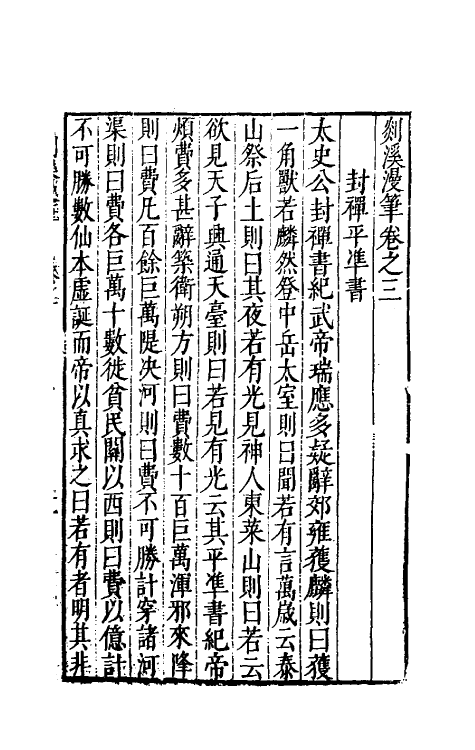 剡溪漫筆卷之三
封禪平準書
太史公封禪書紀武帝瑞應多疑辭郊雍獲麟則曰獲
一角獸若麟然登中岳太室則曰聞若有言萬歲云泰
山祭后土則曰其夜若有光見神人東萊山則曰若云
欲見天子輿通天臺則曰若見有光云其平準書紀帝
煩費多甚辭築衛朔方則曰費數十百巨萬渾邪來降
則曰費凡百餘巨萬隄决河則曰費不可勝計穿諸河
渠則曰費各巨萬十數徙貧民關以西則曰費以億計
不可勝數仙本虛誕而帝以真求之曰若有者明其非